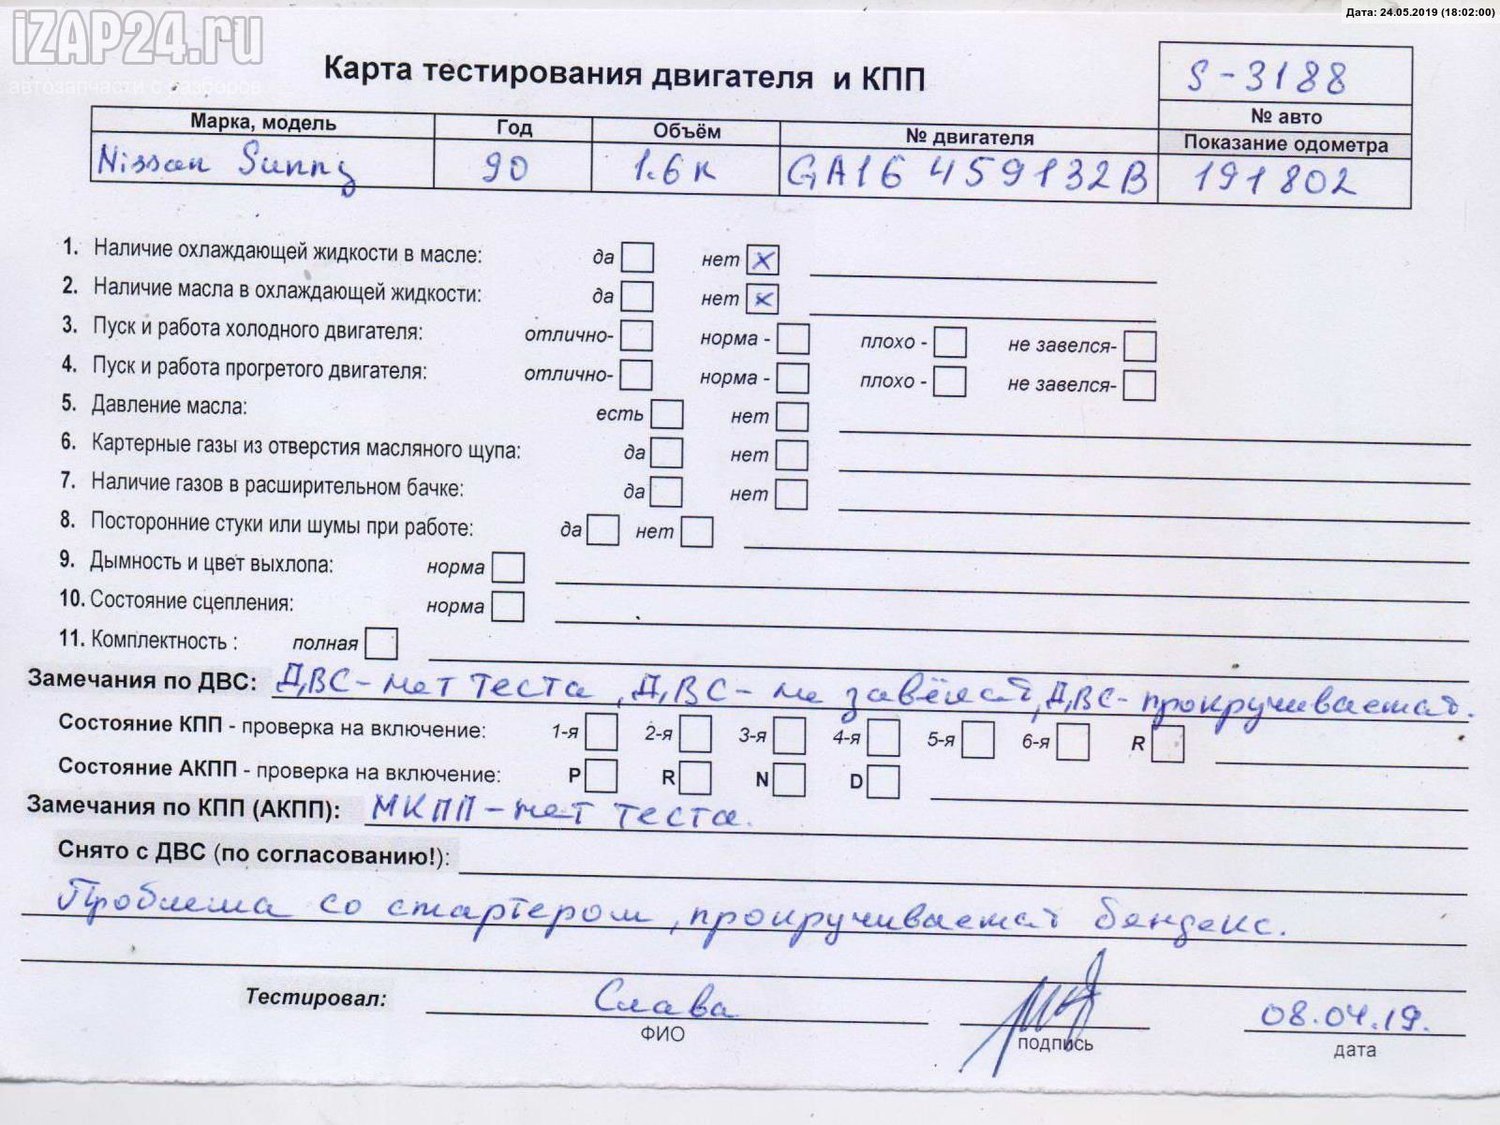 Дата: 24.05.2019 (18:02:00)
iZAP24.ru
автозапчасти с разборов
Карта тестирования двигателя и КПП
S-3188
№ авто
Марка, модель Год Объём № двигателя Показание одометра
Nissan Sunny 90 1.6 к GA16 459132B 191802
1. Наличие охлаждающей жидкости в масле: да нет x
2. Наличие масла в охлаждающей жидкости: да нет x
3. Пуск и работа холодного двигателя: отлично- норма - плохо - не завелся-
4. Пуск и работа прогретого двигателя: отлично- норма - плохо - не завелся-
5. Давление масла: есть нет
6. Картерные газы из отверстия масляного щупа: да нет
7. Наличие газов в расширительном бачке: да нет
8. Посторонние стуки или шумы при работе: да нет
9. Дымность и цвет выхлопа: норма
10. Состояние сцепления: норма
11. Комплектность : полная
Замечания по ДВС: ДВС-нет теста, ДВС- не завёлся, ДВС- прокручивается.
Состояние КПП - проверка на включение: 1-я 2-я 3-я 4-я 5-я 6-я R
Состояние АКПП - проверка на включение: P R N D
Замечания по КПП (АКПП): МКПП-нет теста.
Снято с ДВС (по согласованию!):
Проблема со стартером, прокручивается бендекс.
Тестировал: Слава 08.04.19.
ФИО подпись дата